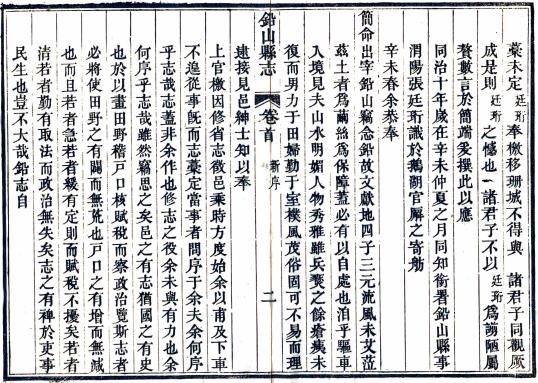 稾未定廷珩奉檄移珊城不得與 諸君子同觀厥
成是則廷珩之憾也一諸君子不以廷珩為謭陋屬
贅數言於簡端爰撰此以應
同治十年歲在辛未仲夏之月同知銜署鉛山縣事
渭陽張廷珩識於鵝湖官廨之寄舫
辛未春余恭奉
簡命出宰鉛山竊念鉛故文獻地四子三元流風未艾蒞
茲土者為繭絲為保障蓋必有以自處也洎乎驅車
入境見夫山水明媚人物秀雅雖兵燹之餘瘡痍未
復而男力于田婦勤于室樸風茂俗固可不易而理
鉛山縣志 卷首 新序 二
逮接見邑紳士知以奉
上官檄因修省志徵邑乘時方度始余以甫及下車
不遑從事旣而志藁定當事者問序于余夫余何序
乎志哉志蓋非余作也修志之役余未與有力也余
何序乎志哉雖然竊思之矣邑之有志猶國之有史
也於以畫田野稽戶口核賦稅而察政治覽斯志者
必將使田野之有闢而無荒也戶口之有增而無減
也而且若者急若者緩有定則而賦稅不擾矣若者
清若者勤有取法而政治無失矣志之有裨於吏事
民生也豈不大哉鉛志自